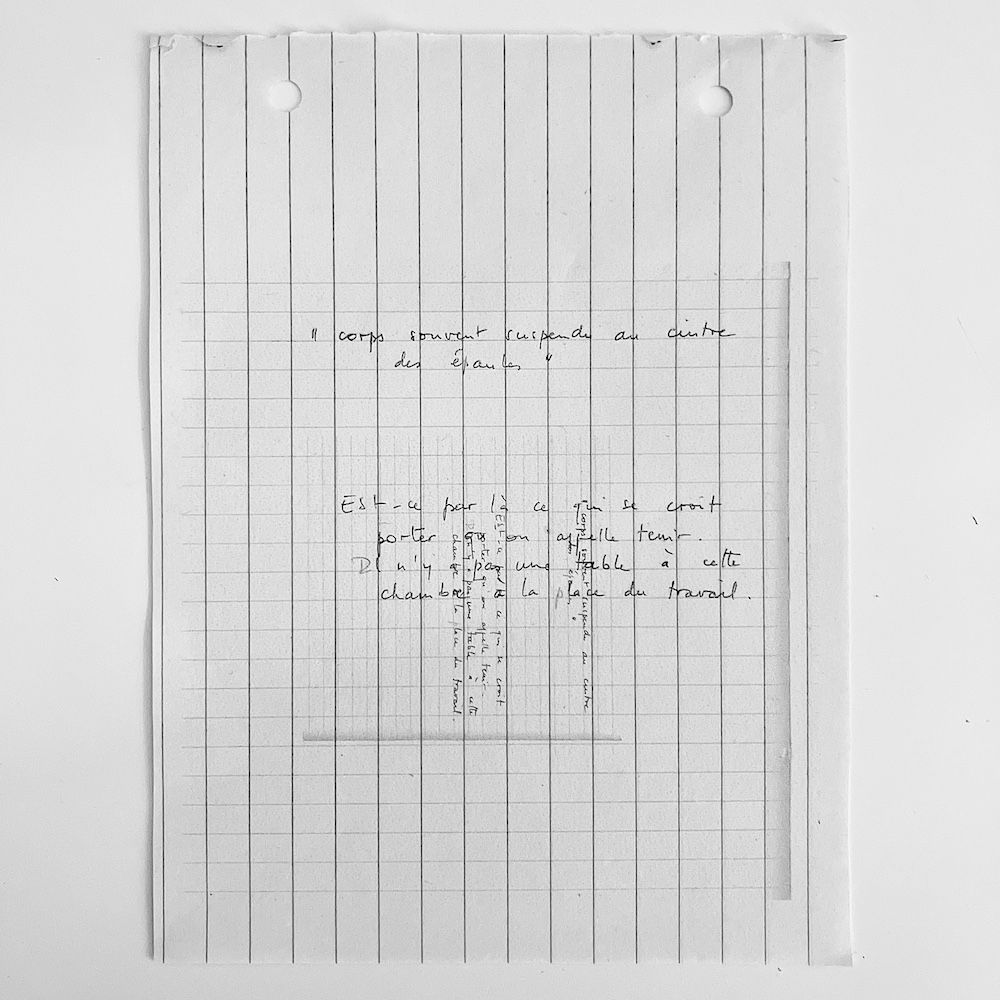 " corps souvent suspendu au cintre
des épaules "
Est-ce par là ce qui se croit
porter qu'on appelle tenir.
Il n'y a pas une table à cette
chambre à la place du travail.
corps souvent suspendu au cintre
des épaules "
Est-ce par là ce qui se croit
porter qu'on appelle tenir.
Il n'y a pas une table à cette
chambre à la place du travail.